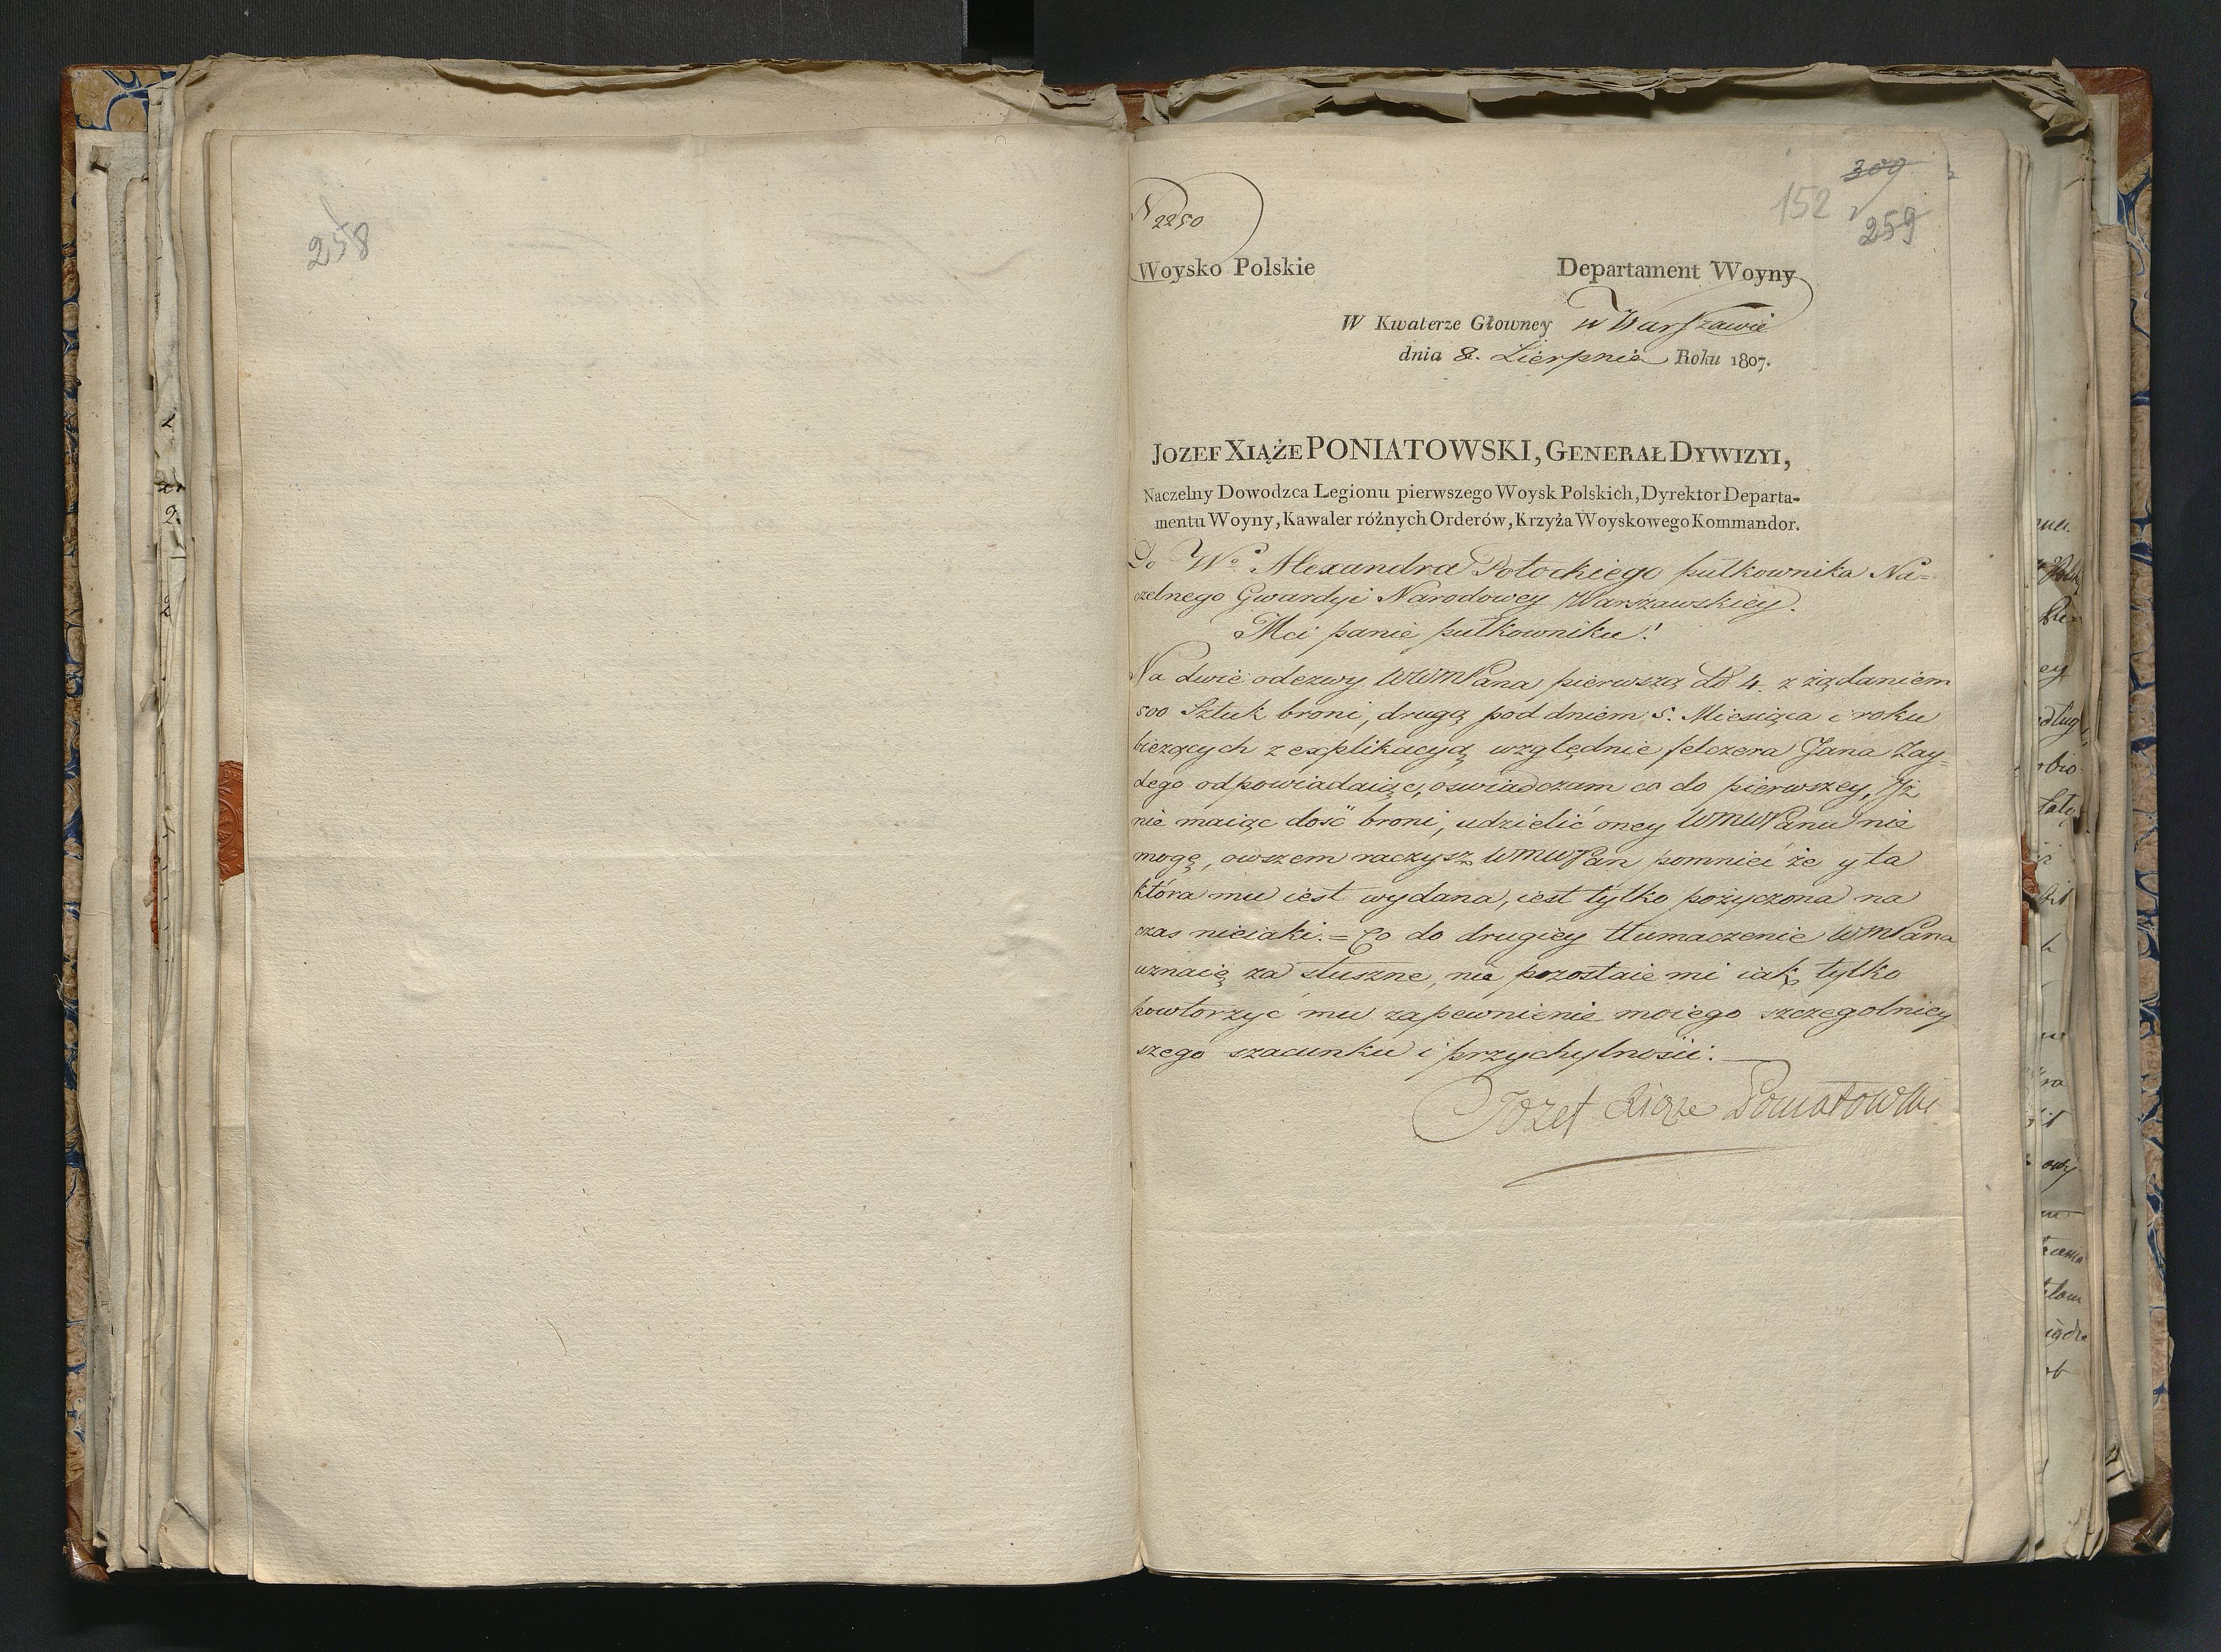 258
300
152
259
N 2250
Woysko Polskie Departament Woyny
W Kwaterze Głowney w Warszawie
dnia 8. Sierpnia Roku 1807.
JOZEF XIĄŻE PONIATOWSKI, GENERAŁ DYWIZYI,
Naczelny Dowodzca Legionu pierwszego Woysk Polskich, Dyrektor Departa-
mentu Woyny, Kawaler różnych Orderów, Krzyża Woyskowego Kommandor.
Do Wo Alexandra Potockiego pułkownika Na=
czelnego Gwardyi Narodowey Warszawskiey.
Mci panie pułkowniku!
Na dwie odezwy WWMPana pierwszą dd 4. z żądaniem
500 Sztuk broni, drugą pod dniem 5. Miesiąca i roku
bieżących z explikacyą względnie felczera Jana Zay=
dego odpowiadaiąc, oswiadczam co do pierwszey, Jż
nie maiąc dość broni, udzielić oney WMWPanu nie
mogę, owszem raczysz WMWPan pomnieć że y ta
która mu iest wydana, iest tylko pożyczona na
czas nieiaki. = Co do drugiey tłumaczenie WMPana
uznaię za słuszne, nie pozostaie mi iak tylko
powtorzyć mu zapewnienie moiego szczegolniey
szego szacunku i przychylności.
Jozef Xiąże Poniatowski